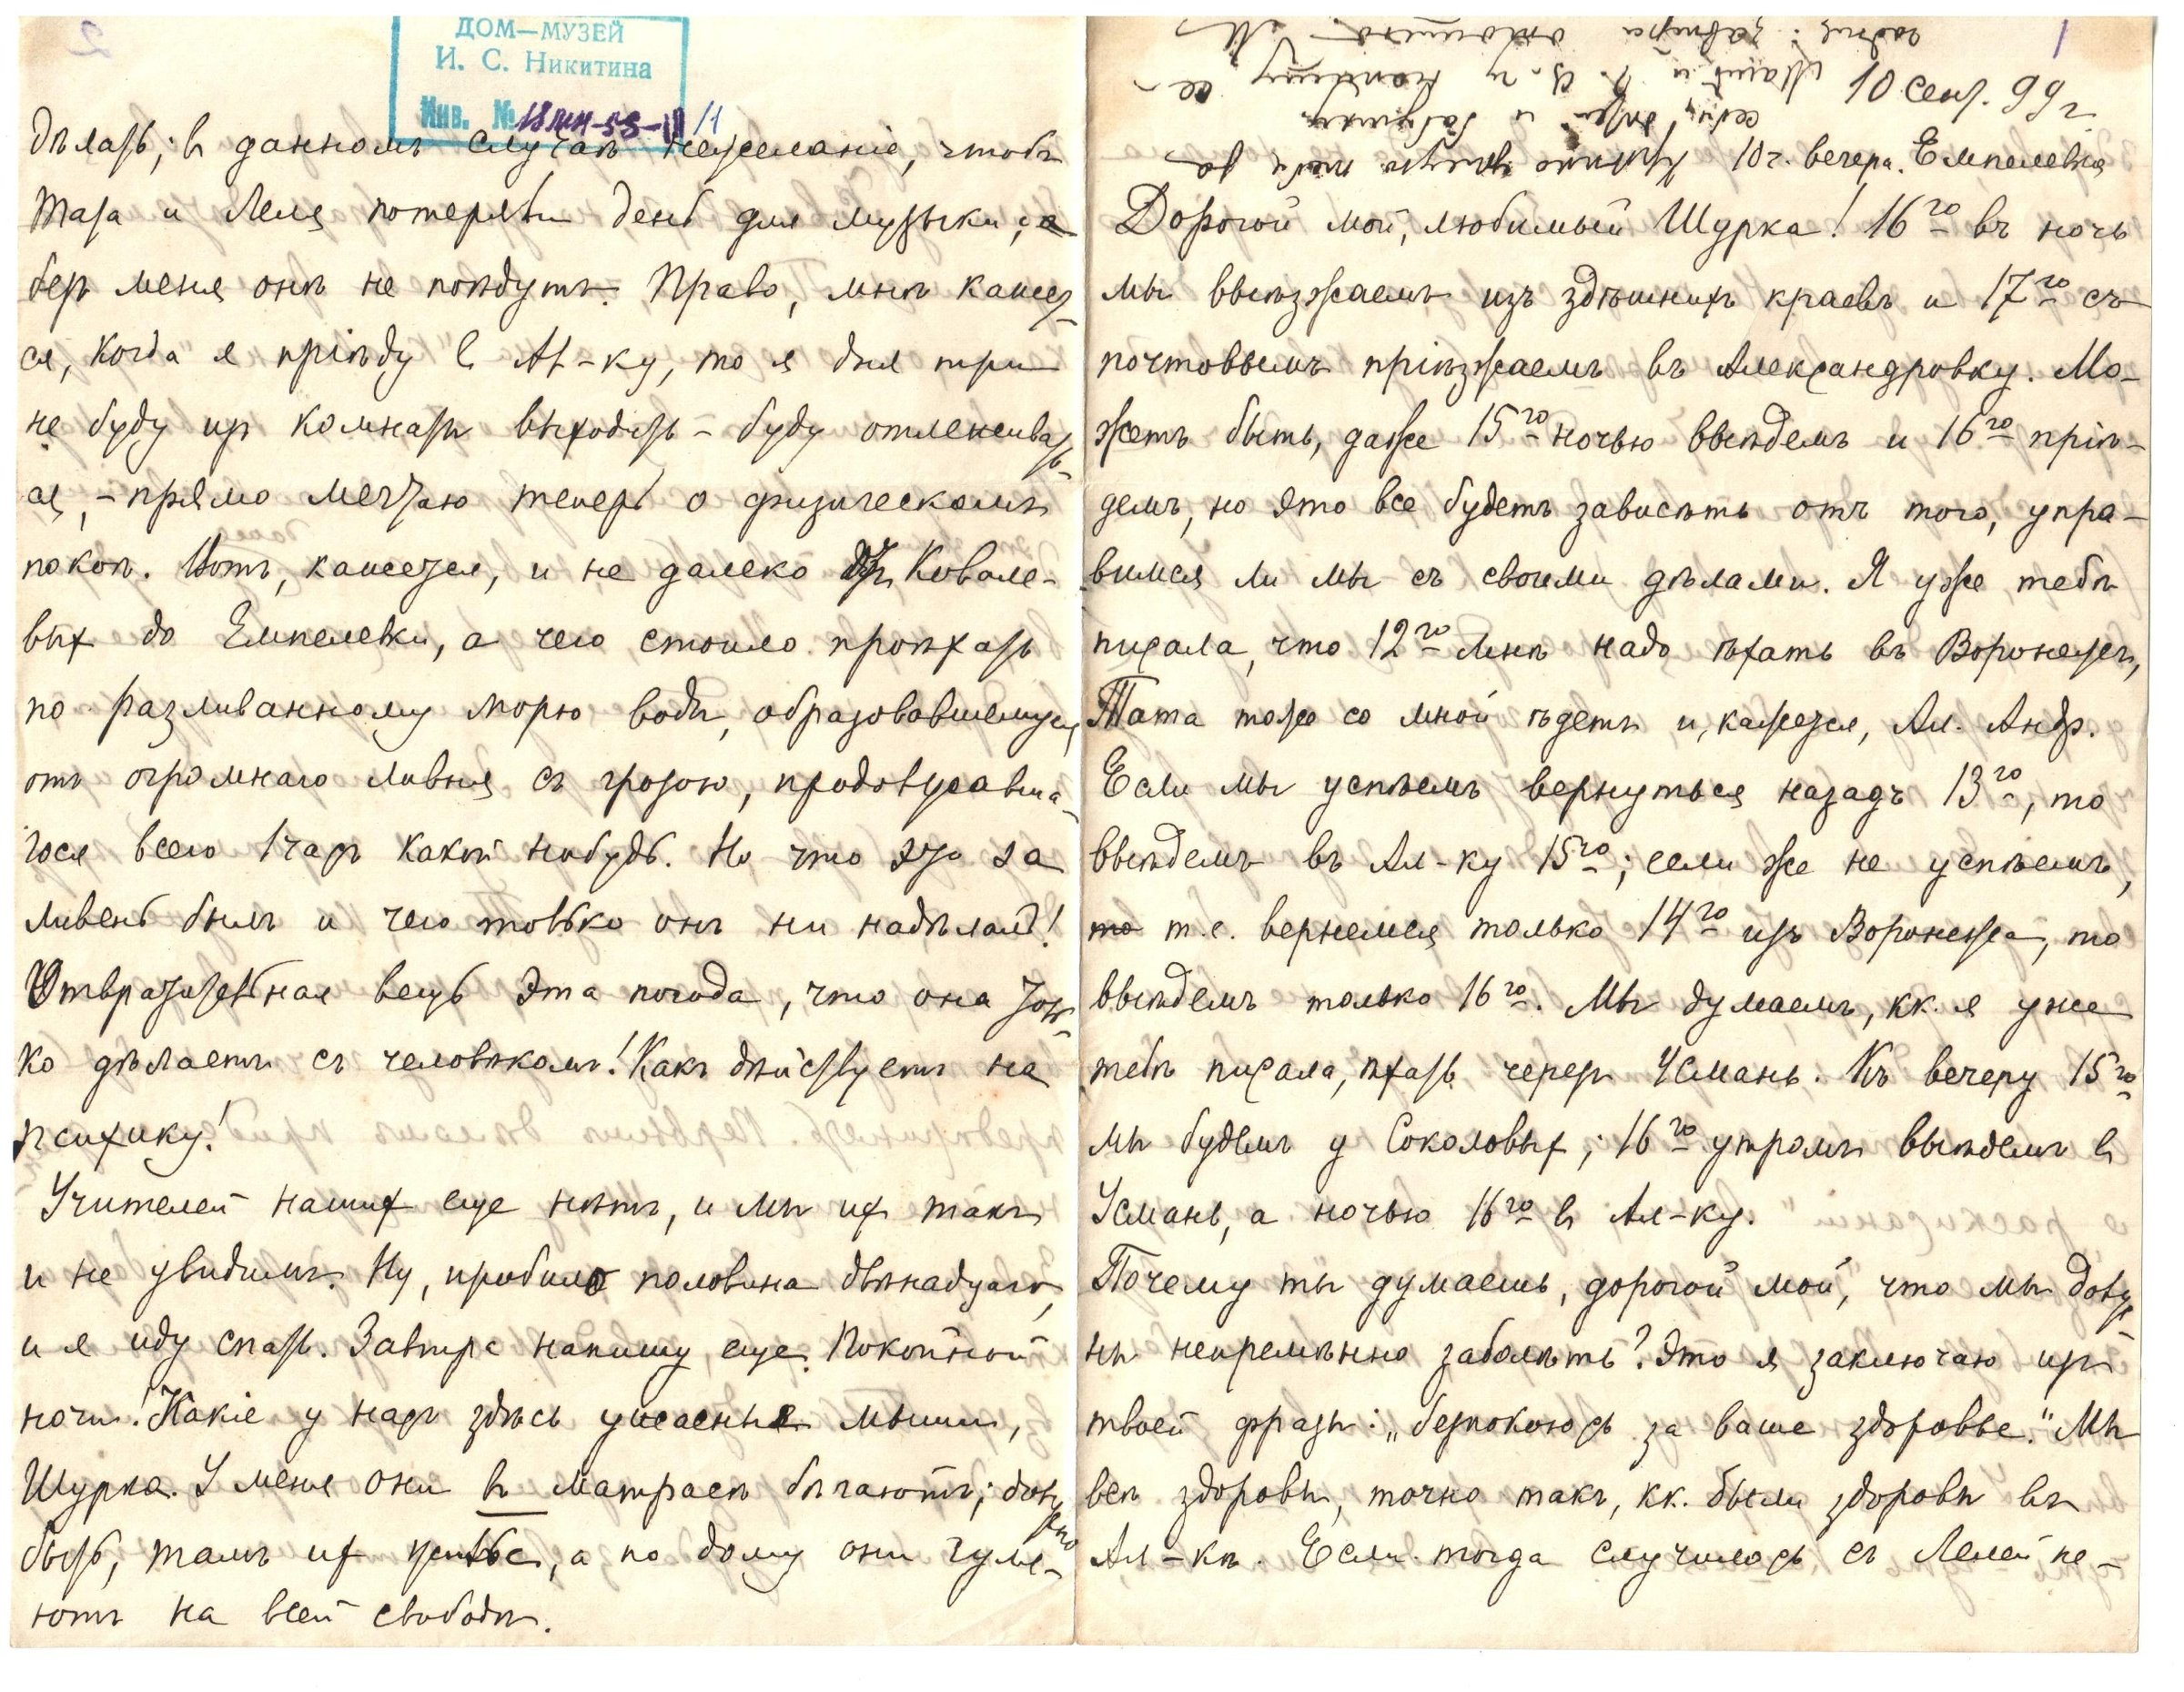 1
10 сент. 99 г.
10 ч. вечера. Емпелевка
Дорогой мой, любимый Шурка! 16го въ ночь
мы выѣзжаемъ изъ здѣшнихъ краевъ и 17го съ
почтовымъ пріѣзжаемъ въ Александровку. Мо-
жетъ быть, даже 15го ночью выѣдемъ и 16го пріѣ-
демъ, но это все будетъ зависѣть отъ того, упра-
вимся ли мы съ своими дѣлами. Я уже тебѣ
писала, что 12го мнѣ надо ѣхать въ Воронежъ,
Тата тоже со мной ѣдетъ и, кажется, Ал. Андр.
Если мы успѣемъ вернуться назадъ 13го, то
выѣдемъ въ Ал-ку 15го; если же не успѣемъ,
то т.е. вернемся только 14го изъ Воронежа, то
выѣдемъ только 16го. Мы думаемъ, кк. я уже
тебѣ писала, ѣхать черезъ Усмань. Къ вечеру 15го
мы будемъ у Соколовых; 16го утромъ выѣдемъ в
Усмань, а ночью 16го в Ал-ку.
Почему ты думаешь, дорогой мой, что мы долж-
ны непремѣнно заболѣть? Это я заключаю изъ
твоей фразы: „безпокоюсь за ваше здоровье." Мы
всѣ здоровы, точно такъ, кк. были здоровы въ
Ал-кѣ. Если тогда случилось съ Лелей не-
2
ДОМ—МУЗЕЙ
И. С. Никитина
Инв. №
дѣлать; в данномъ случаѣ нежеланіе, чтобы
Тата и Леля потеряли день для музыки, а
безъ меня онѣ не поѣдутъ. Право, мнѣ кажет-
ся, когда я пріѣду в Ал-ку, то я дня три
не буду изъ комнаты выходить – буду отлеживать-
ся, – прямо мечтаю теперь о физическомъ
покоѣ. Вотъ, кажется, и не далеко отъ Ковале-
вых до Емпелевки, а чего стоило проѣхать
по разливанному морю воды, образовавшемуся
отъ огромнаго ливня съ грозою, продолжавша-
гося всего 1 часъ какой нибудь. Но что это за
ливень былъ и чего только онъ ни надѣлалъ!
Отвратительная вещь эта погода, что она толь-
ко дѣлаетъ съ человѣкомъ! Какъ дѣйствуетъ на
психику!
Учителей наших еще нѣтъ, и мы их такъ
и не увидимъ. Ну, пробило половина двѣнадцаго,
и я иду спать. Завтра напишу еще. Покойной
ночи! Какіе у насъ здѣсь ужасные мыши,
Шурка. У меня они въ матрасѣ бѣгаютъ; должно
быть, тамъ их гнѣздо, а по дому они гуля-
ютъ на всей свободѣ.